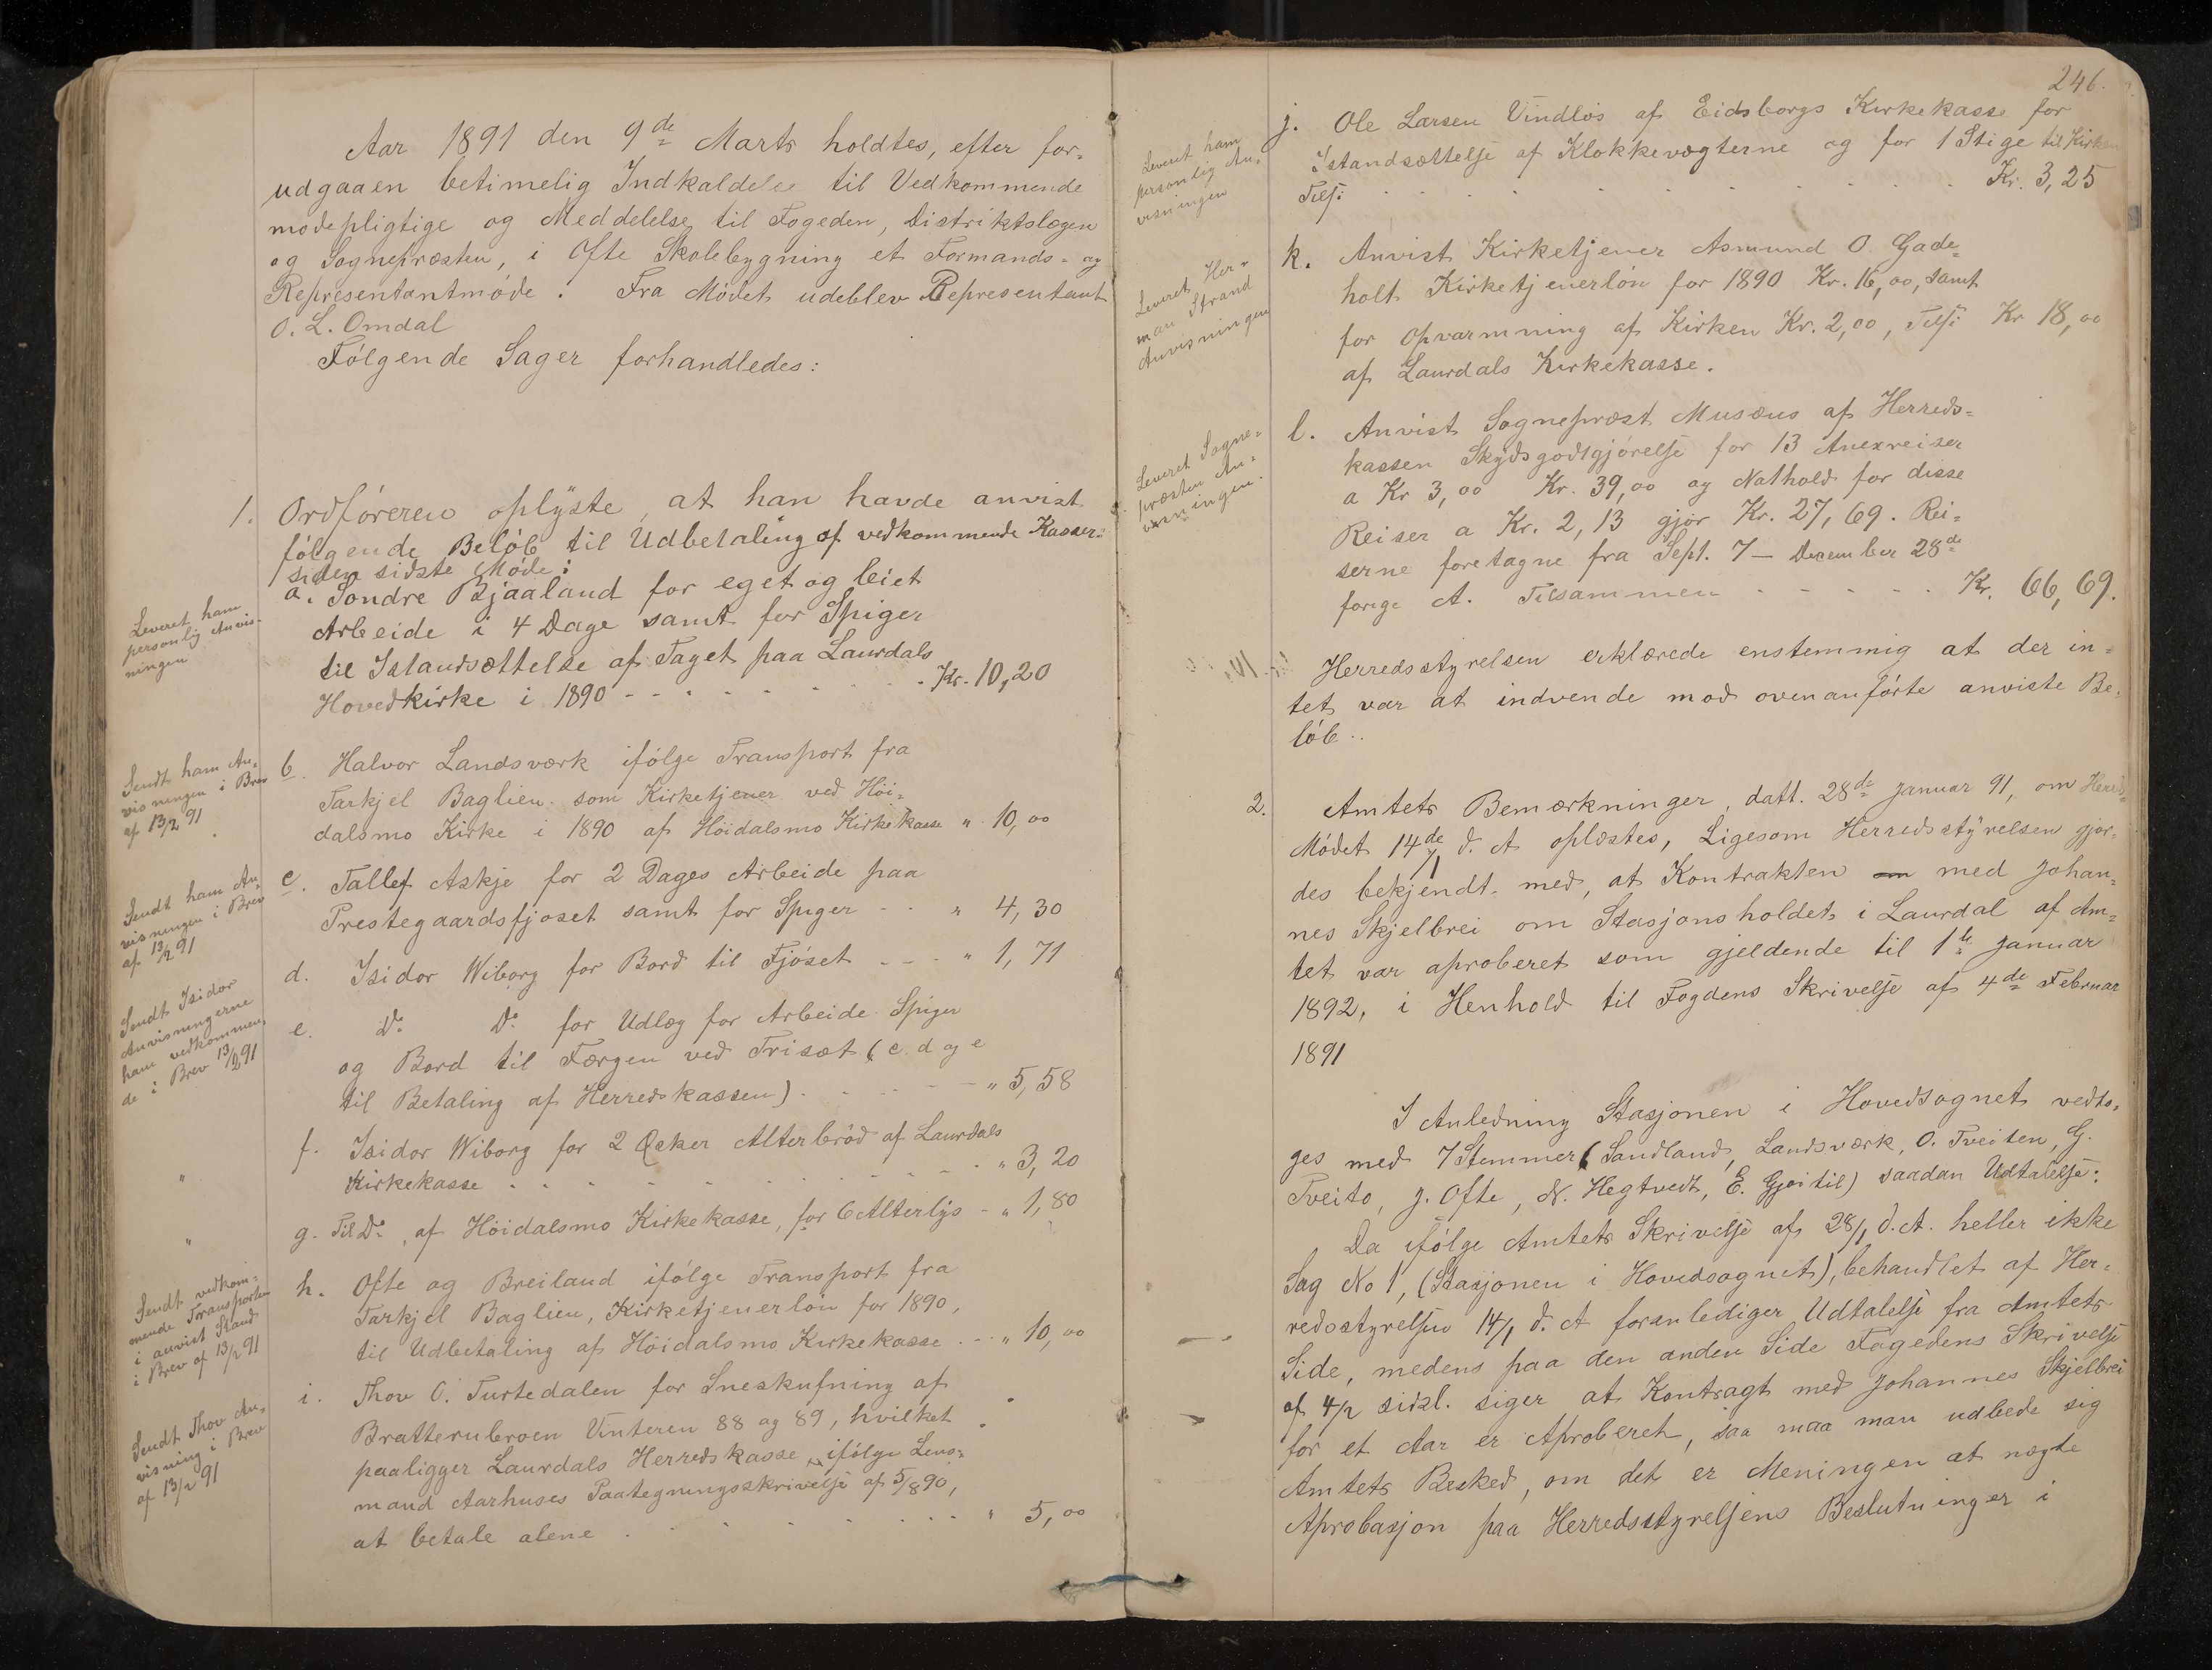 Aar 1891 den 9de Marts holdtes, efter for-
udgaaen betimelig Indkaldelse til Vedkommende
mødepligtige og Meddelelse til Fogeden, Distriktslægen
og Sognepræsten, i Ofte Skolebygning et Formands- og
Representantmøde. Fra Mødet udeblev Representant
O. L. Omdal
Følgende Sager forhandledes:
1. Ordføreren oplyste, at han havde anvist
følgende Beløb til Udbetaling af vedkommende Kasser
siden sidste Møde:
Leveret ham
personlig Anvis-
ningen
a. Sondre Bjaaland for eget og leiet
Arbeide i 4 Dage samt for Spiger
til Istandsættelse af Taget paa Laurdals
Hovedkirke i 1890 - - - Kr. 10,20
Sendt ham An-
visningen i Brev
af 13/2 91
b. Halvor Landsværk ifølge Transport fra
Tarkjel Baglien som Kirketjener ved Høi-
dalsmo Kirke i 1890 af Høidalsmo Kirkekasse " 10,00
Sendt ham An-
visningen i Brev
af 13/2 91
c. Tallef Askje for 2 Dages Arbeide paa
Prestegaardsfjøset samt for Spiger - - " 4,30
Sendt Isidor
Anvisningerne
ham vedkommen-
de i Brev 13/2 91
d. Isidor Wiborg for Bord til Fjøset - - - " 1,71
e. Do Do for Udlæg for Arbeide Spiger
og Bord til Færgen ved Trisæt (c. d og e
til Betaling af Herredskassen) - - " 5,58
"
f. Isidor Wiborg for 2 Æsker Alterbrød af Laurdals
Kirkekasse - - - " 3,20
"
g. Til Do, af Høidalsmo Kirkekasse, for 6 Alterlys - " 1,80
Sendt vedkom-
mende Transporten
i anvist Stand
i Brev af 13/2 91
h. Ofte og Breiland ifølge Transport fra
Tarkjel Baglien, Kirketjenerløn for 1890,
til Udbetaling af Høidalsmo Kirkekasse - - - " 10,00
Sendt Thov An-
visning i Brev
af 13/2 91
i. Thov O. Turtedalen for Sneskufning af
Bratterubroen Vinteren 88 og 89, hvilket
paaligger Laurdals Herredskasse, ifølge Lens-
mand Aarhuses Paategningsskrivelse af 5/8 90,
at betale alene - - - " 5,00
246.
Leveret ham
personlig An-
visningen
j. Ole Larsen Vindlös af Eidsborgs Kirkekasse for
Istandsættelse af Klokkevægterne og for 1 Stige til Kirken
Tils: - - - Kr. 3,25
Leveret Her-
man Strand
Anvisningen
k. Anvist Kirketjener Asmund O. Gade-
holt Kirketjenerløn for 1890 Kr. 16,00, samt
for Opvarmning af Kirken Kr. 2,00, Tils: Kr 18,00
af Laurdals Kirkekasse.
Leveret Sogne-
præsten An-
visningen.
l. Anvist Sogneprest Musæus af Herreds-
kassen Skydsgodtgjørelse for 13 Anexreiser
a Kr 3,00 Kr. 39,00 og Nathold for disse
Reiser a Kr. 2,13 gjør Kr. 27,69. Rei-
serne foretagne fra Sept. 7 - December 28de
forige A. Tilsammen - - - Kr. 66,69.
Herredsstyrelsen erklærede enstemmig at der in-
tet var at indvende mod ovenanførte anviste Be-
løb.
2. Amtets Bemærkninger, datt. 28de Januar 91, om Herreds-
Mødet 14de/1 d. A oplæstes, Ligesom Herredsstyrelsen gjor-
des bekjendt med, at Kontrakten om med Johan-
nes Skjelbrei om Stasjonsholdet i Laurdal af Am-
tet var aproberet som gjeldende til 1te Januar
1892, i Henhold til Fogdens Skrivelse af 4de Februar
1891
I Anledning Stasjonen i Hovedsognet vedto-
ges med 7 Stemmer (Sandland, Landsværk, O. Tveiten, G.
Tveito, J. Ofte, N. Hegtvedt, E. Gjøitil) saadan Udtalelse:
Da ifølge Amtets Skrivelse af 28/1 d. A. heller ikke
Sag No 1, (Stasjonen i Hovedsognet), behandlet af Her-
redsstyrelsen 14/1 d. A foranlediger Udtalelse fra Amtets
Side, medens paa den anden Side Fogedens Skrivelse
af 4/2 sidstl. siger at Kontragt med Johannes Skjelbrei
for et Aar er Aproberet, saa maa man udbede sig
Amtets Besked, om det er Meningen at nægte
Aprobasjon paa Herredsstyrelsens Beslutninger i